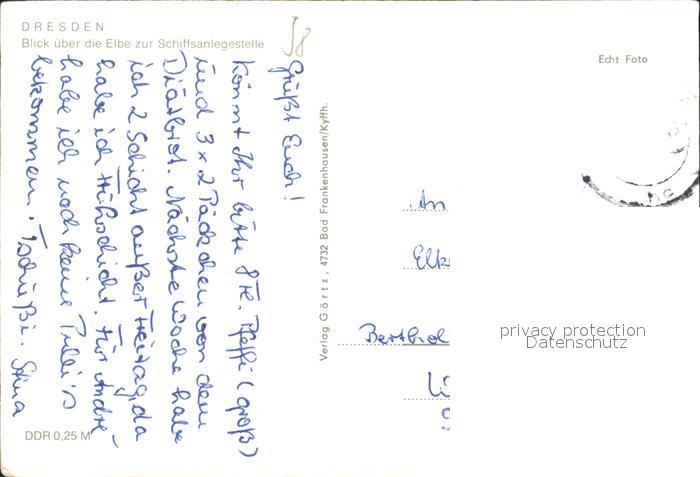 DRESDEN
Blick über die Elbe zur Schiffsanlegestelle
58
Echt Foto
Grüßt Euch!
Könnt Ihr bitte 8 Fl. Pfeffi (groß)
und 3 x 2 Päckchen von dem
Diätbrot. Nächste Woche habe
ich 2 Schicht außer Freitag, da
habe ich Frühschicht. Für André
habe ich noch keine Pulli's
bekommen. Tschüßi.
Verlag Görtz, 4732 Bad Frankenhausen/Kyffh.
An
Elk
privacy protection
Datenschutz
DDR 0,25 M